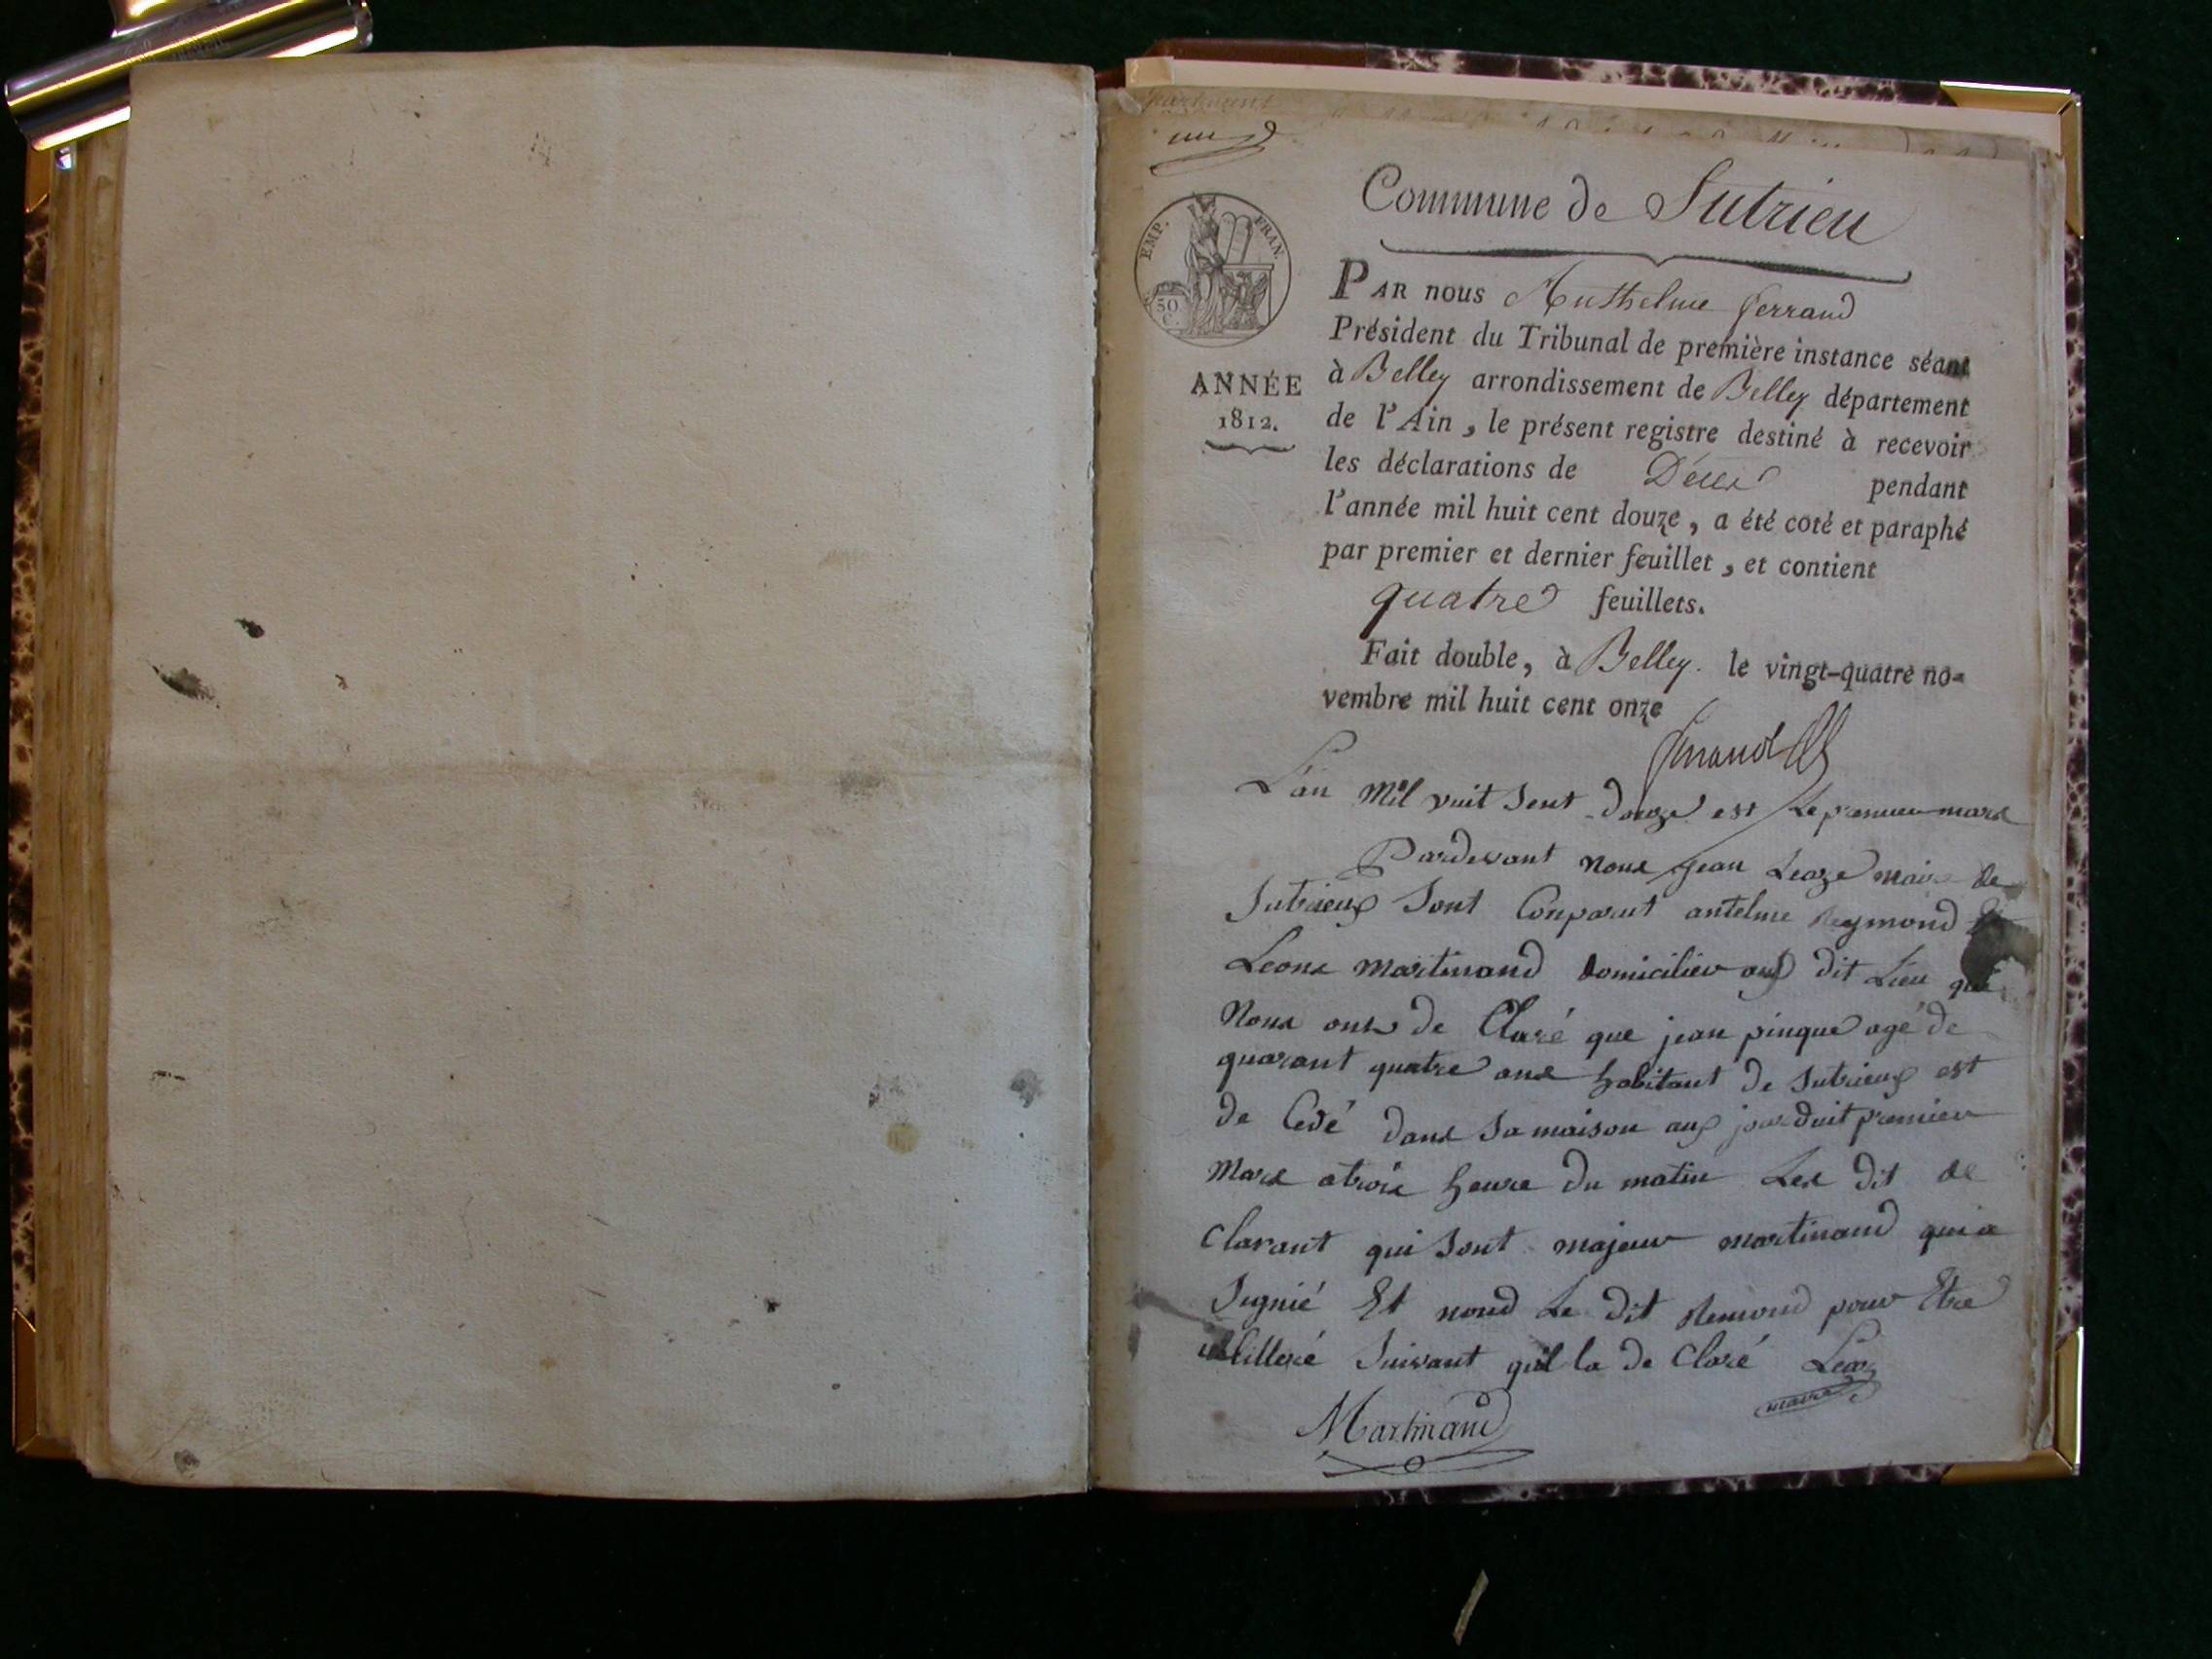 un
EMP. FRAN.
50
C.
ANNÉE
1812.
Commune de Sutrieu
PAR nous Anthelme ferrand
Président du Tribunal de première instance séant
à Belley arrondissement de Belley département
de l'Ain, le présent registre destiné à recevoir
les déclarations de Décès pendant
l'année mil huit cent douze, a été coté et paraphé
par premier et dernier feuillet, et contient
quatre feuillets.
Fait double, à Belley. le vingt-quatre no=
vembre mil huit cent onze
ferrand
L'an mil vuit sent douze est le premier mars
Pardevant nous jean Leaze maire de
Sutrieux sont Conparut antelme Reymond Et
Leons martinand domicilier aux dit Lieu qui
nous ons de Claré que jean pinque agé de
quarant quatre ans habitant de sutrieux est
de Cedé dans sa maison aux jourduit premier
mars a trois heure du matin Les dit de
clarant qui sont majeur martinand qui a
signié Et nond Le dit Remond pour Etre
illilleré suivant quil la de Claré Leaz
maire
Martinand